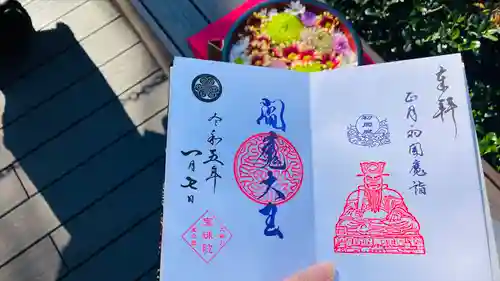 奉拝
正月初閻魔詣
閻魔大王
令和五年
一月七日
宝珠院